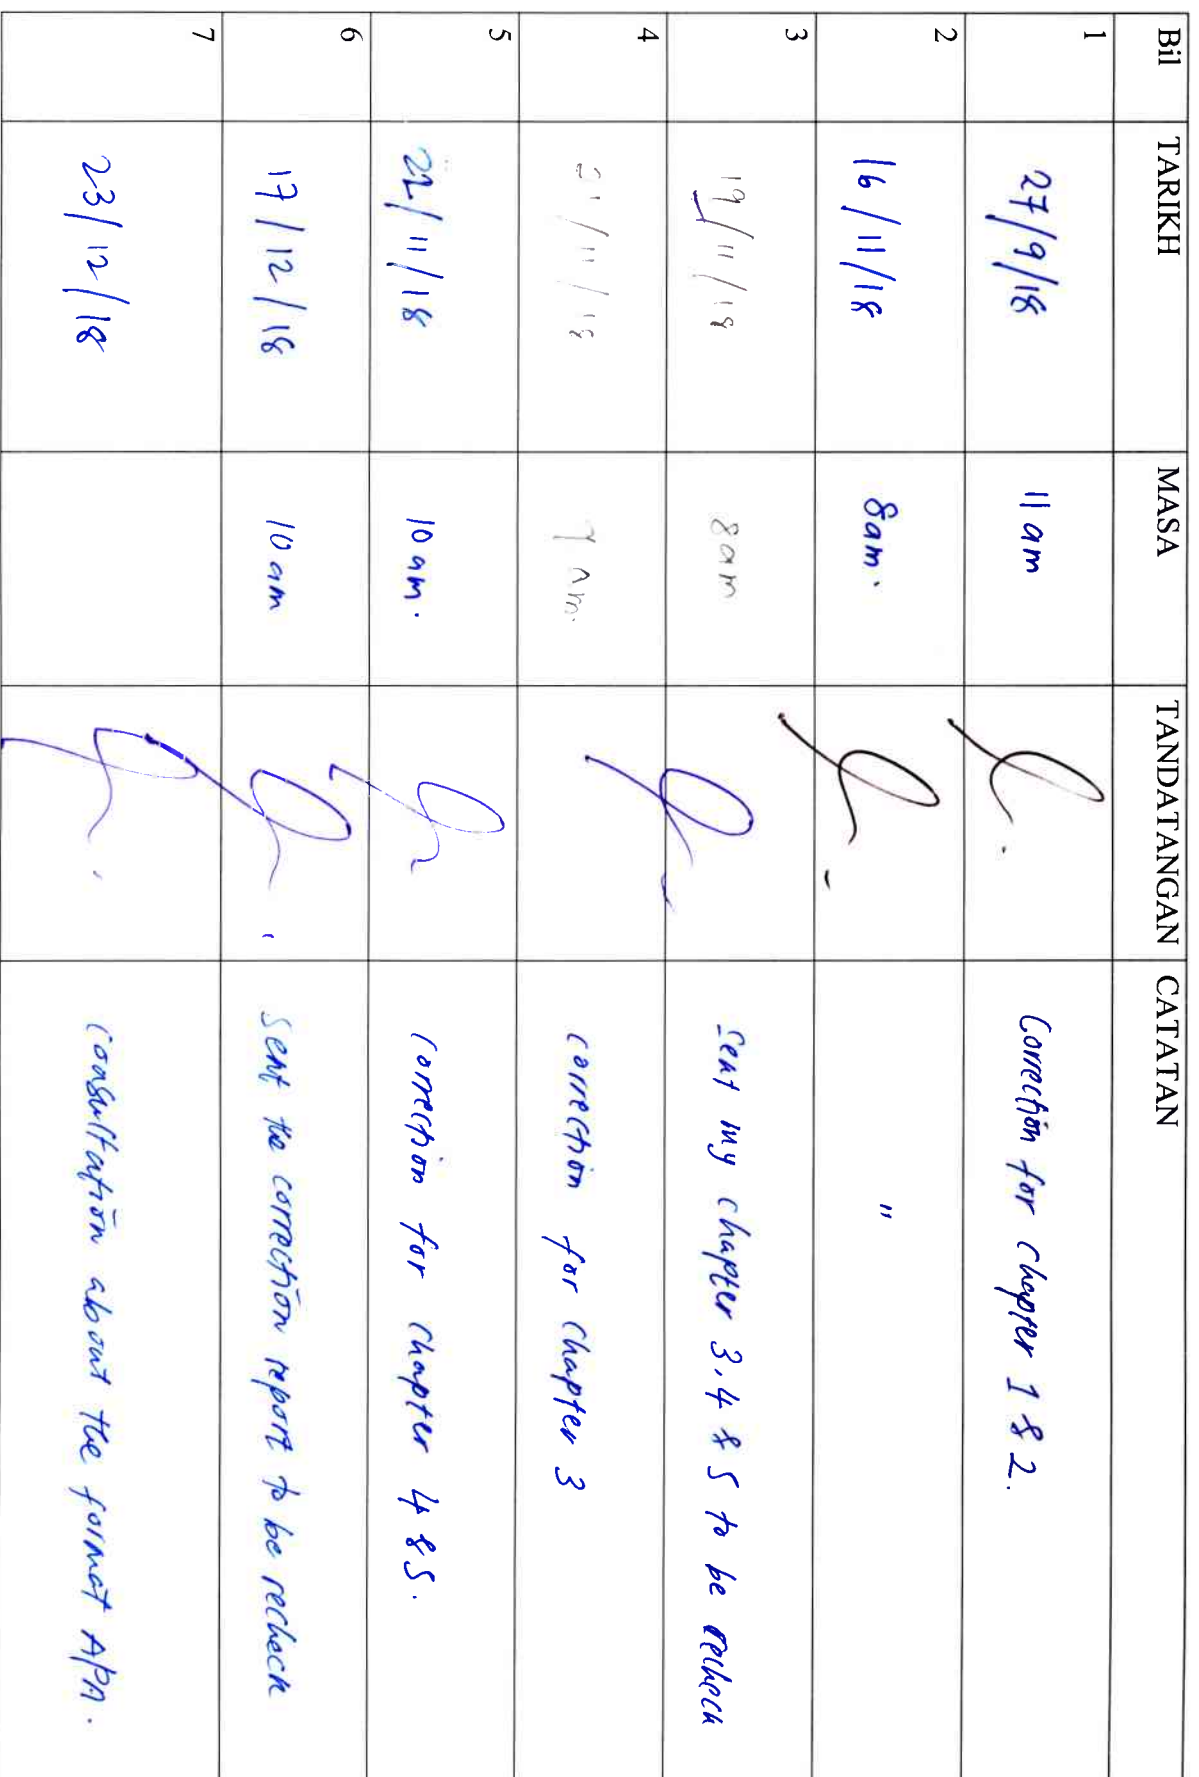 Bil TARIKH MASA TANDATANGAN CATATAN
1 27/9/18 11 am Correction for chapter 1 & 2.
2 16/11/18 8am. "
3 19/11/18 8am Sent my chapter 3,4 & 5 to be recheck
4 21/11/18 9 am. correction for chapter 3
5 22/11/18 10 am. correction for chapter 4 & 5.
6 17/12/18 10 am Sent the correction report to be recheck
7 23/12/18 Consultation about the format APA.